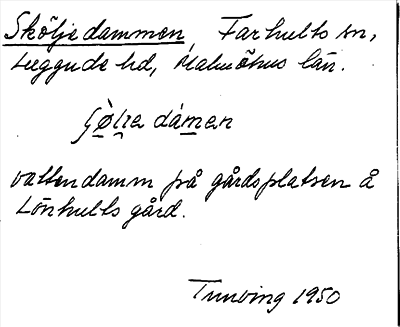 Sköljedammen, Farhults sn,
Luggude hd, Malmöhus län.
damen
vattendamm på gårdsplatsen å
Lönhults gård.
Tunving 1950